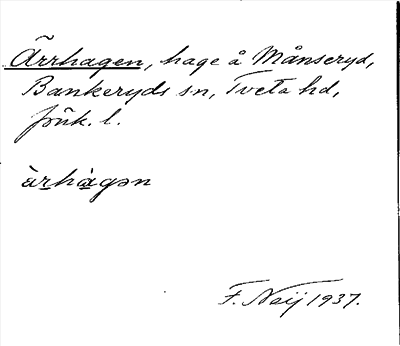 Ärrhagen, hage å Månseryd,
Bankeryds sn, Tveta hd,
Jönk. l.
àrhàgən
F. Neij 1937.